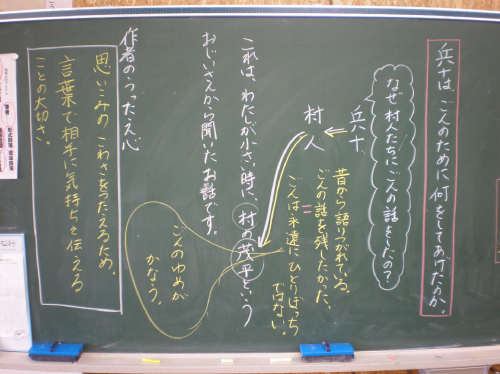 兵十は、ごんのために何をしてあげたらか。
なぜ村人たちにごんの話をしたの?
兵十
村人
昔から語りつがれている。
ごんの話を残したかった。
ごんは永遠にひとりぼっち
ではない。
これは、わたしが小さい時に、村の茂平という
おじいさんから聞いたお話です。
ごんのゆめが
かなう。
作者のつたえ心
思いこみのこわさをつたえるため。
言葉で相手に気持ちを伝える
ことの大切さ。